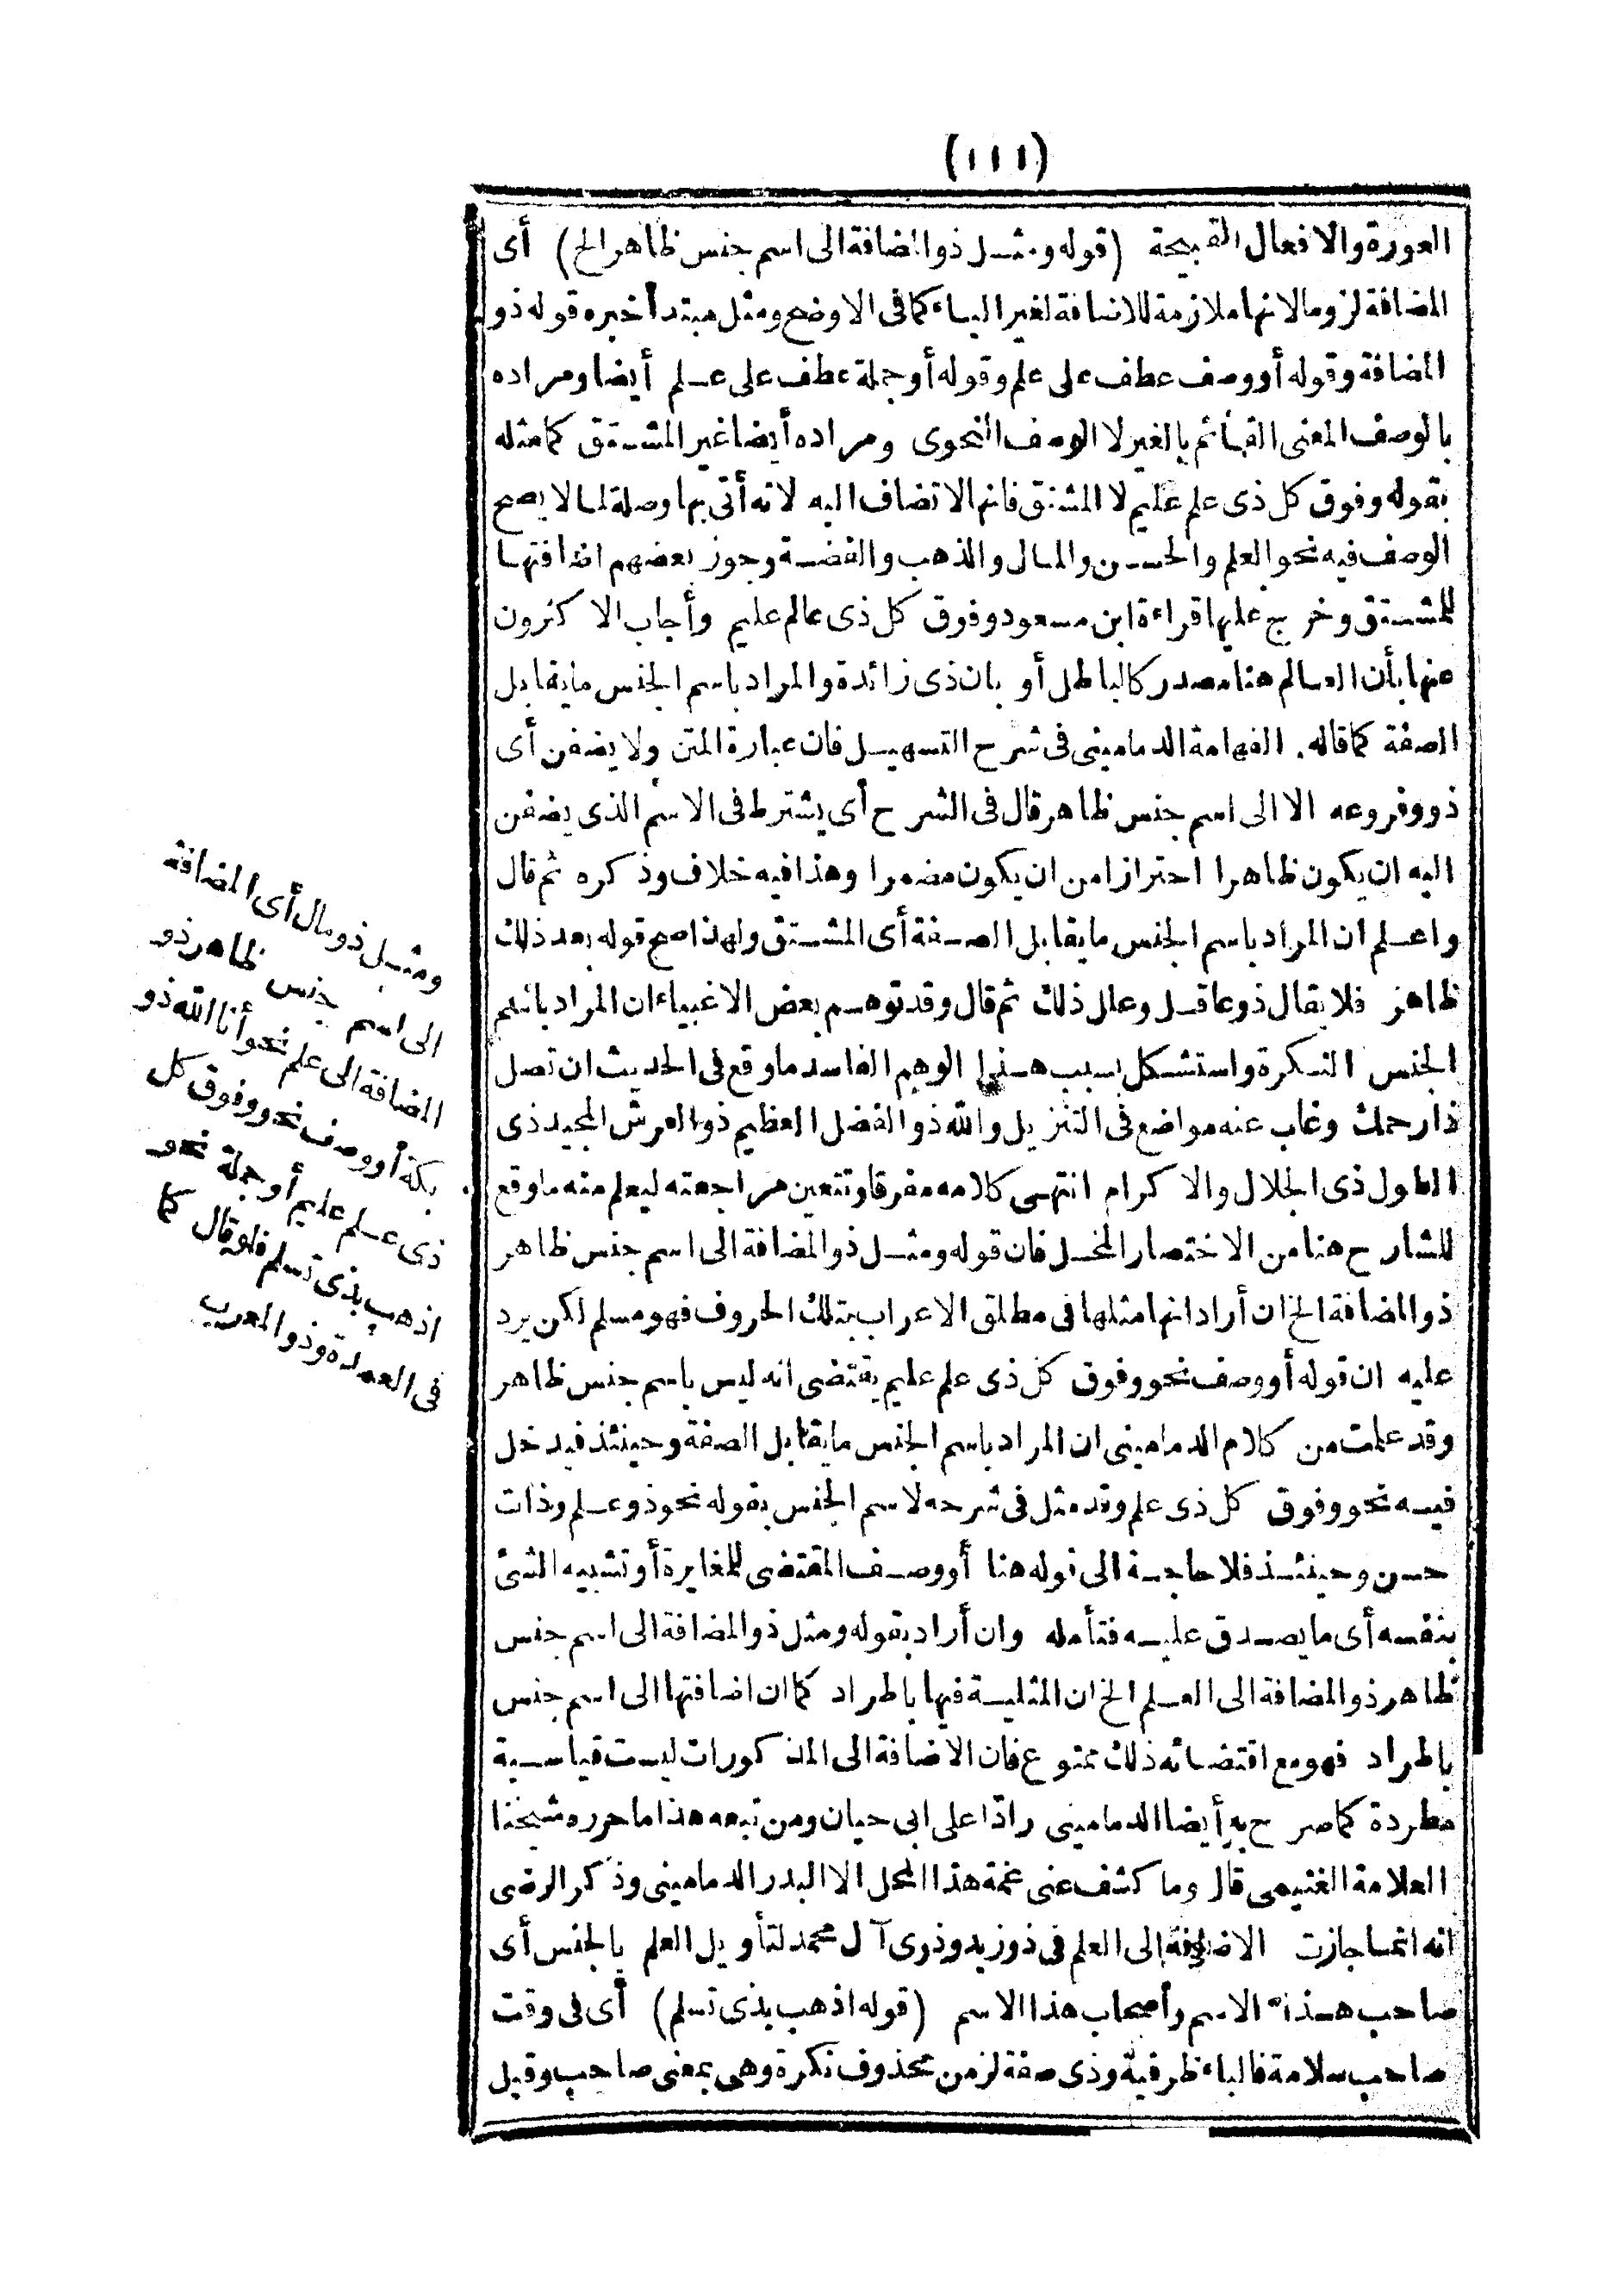 (١١١)
العورة والافعال القبيحة (قوله ومثل ذو المضافة الى اسم جنس ظاهر الخ) أى
المضافة لزوما لانها ملازمة للاضافة لغير الياء كما فى الاوضح ومثل مبتدأ خبره قوله ذو
المضافة وقوله أو وصف عطف على علم وقوله أو جملة عطف على علم أيضا ومراده
بالوصف المعنى القائم بالغير لا الوصف النحوى ومراده أيضا غير المشتق كما مثله
بقوله وفوق كل ذى علم عليم لا المشتق فانها لا تضاف اليه لانه أتى بها وصلة لما لا يصح
الوصف فيه نحو العلم والحسن والمال والذهب والفضة وجوز بعضهم اضافتها
للمشتق وخرج عليها قراءة ابن مسعود وفوق كل ذى عالم عليم وأجاب الاكثرون
عنها بأن العالم هنا مصدر كالباطل أو بان ذى زائدة والمراد باسم الجنس ما يقابل
الصفة كما قاله. الفهامة الدمامينى فى شرح التسهيل فان عبارة المتن ولا يضفن أى
ذو وفروعه الا الى اسم جنس ظاهر قال فى الشرح أى يشترط فى الاسم الذى يضفن
اليه ان يكون ظاهرا احترازا من ان يكون مضمرا وهذا فيه خلاف وذكره ثم قال
واعلم ان المراد باسم الجنس ما يقابل الصفة أى المشتق ولهذا صح قوله بعد ذلك
ظاهر فلا يقال ذو عاقل وعلل ذلك ثم قال وقد توهم بعض الاغبياء ان المراد باسم
الجنس النكرة واستشكل بسبب هذا الوهم الفاسد ما وقع فى الحديث ان تصل
ذا رحمك وغاب عنه مواضع فى التنزيل والله ذو الفضل العظيم ذو العرش المجيد ذى
الطول ذى الجلال والاكرام انتهى كلامه مفرقا وتتعين مراجعته ليعلم منه ما وقع
للشارح هنا من الاختصار المخل فان قوله ومثل ذو المضافة الى اسم جنس ظاهر
ذو المضافة الخ ان أراد انها مثلها فى مطلق الاعراب بتلك الحروف فهو مسلم لكن يرد
عليه ان قوله أو وصف نحو وفوق كل ذى علم عليم يقتضى انه ليس باسم جنس ظاهر
وقد علمت من كلام الدمامينى ان المراد باسم الجنس ما يقابل الصفة وحينئذ فيدخل
فيه نحو وفوق كل ذى علم وقد مثل فى شرحه لاسم الجنس بقوله نحو ذو علم وذات
حسن وحينئذ فلا حاجة الى قوله هنا أو وصف المقتضى للمغايرة أو تشبيه الشئ
بنفسه أى ما يصدق عليه فتأمله وان أراد بقوله ومثل ذو المضافة الى اسم جنس
ظاهر ذو المضافة الى العلم الخ ان المثلية فيها باطراد كما ان اضافتها الى اسم جنس
باطراد فهو مع اقتضائه ذلك ممنوع فان الاضافة الى المذكورات ليست قياسية
مطردة كما صرح به أيضا الدمامينى رادّا على ابى حيان ومن تبعه هذا ما حرره شيخنا
العلامة الغنيمى قال وما كشف عنى غمة هذا المحل الا البدر الدمامينى وذكر الرضى
انه انما جازت الاضافة الى العلم فى ذو زيد وذوى آل محمد لتأويل العلم بالجنس أى
صاحب هذا الاسم وأصحاب هذا الاسم (قوله اذهب بذى تسلم) أى فى وقت
صاحب سلامة فالباء ظرفية وذى صفة لزمن محذوف نكرة وهى بمعنى صاحب وقيل
ومثل ذو مال أى المضافة
الى اسم جنس ظاهر ذو
المضافة الى علم نحو أنا الله ذو
بكة أو وصف نحو وفوق كل
ذى علم عليم أو جملة نحو
اذهب بذى تسلم فلو قال كما
فى العمدة وذو المعرب